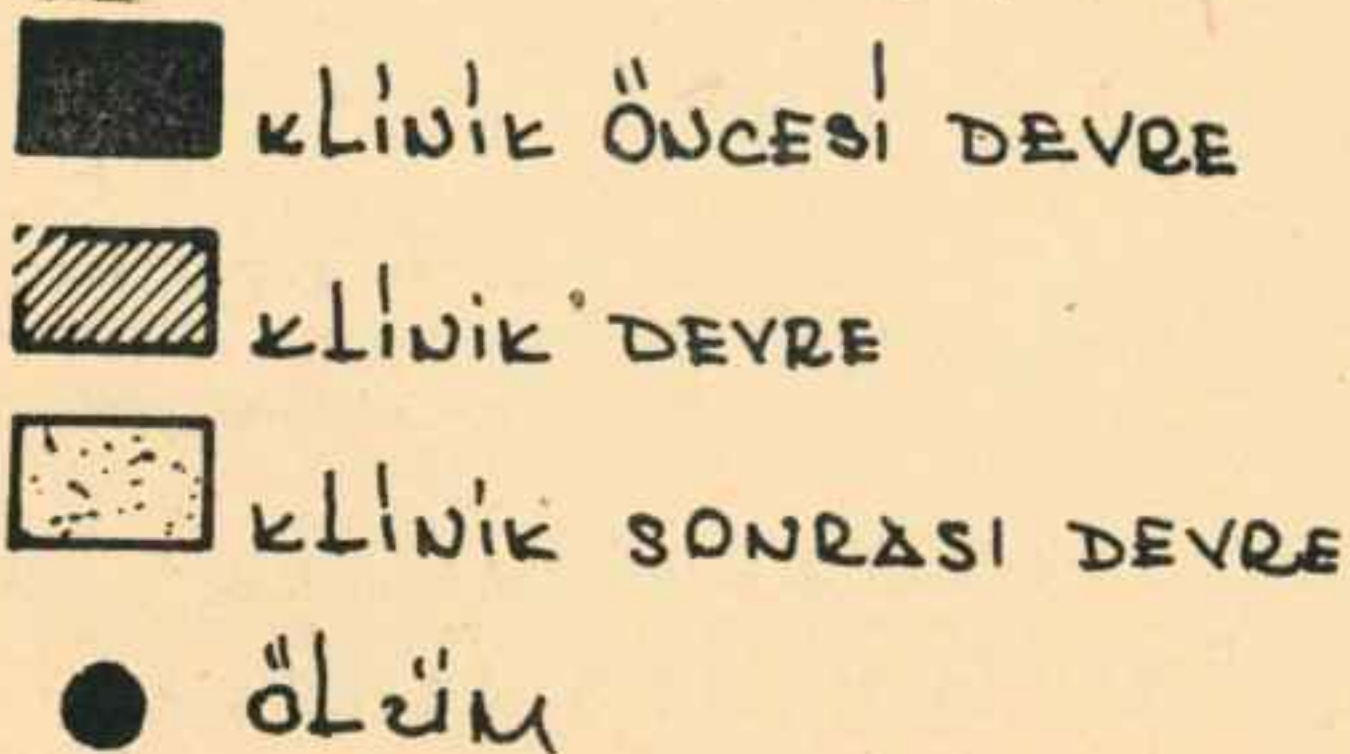 KLİNİK ÖNCESİ DEVRE
KLİNİK DEVRE
KLİNİK SONRASI DEVRE
ÖLÜM